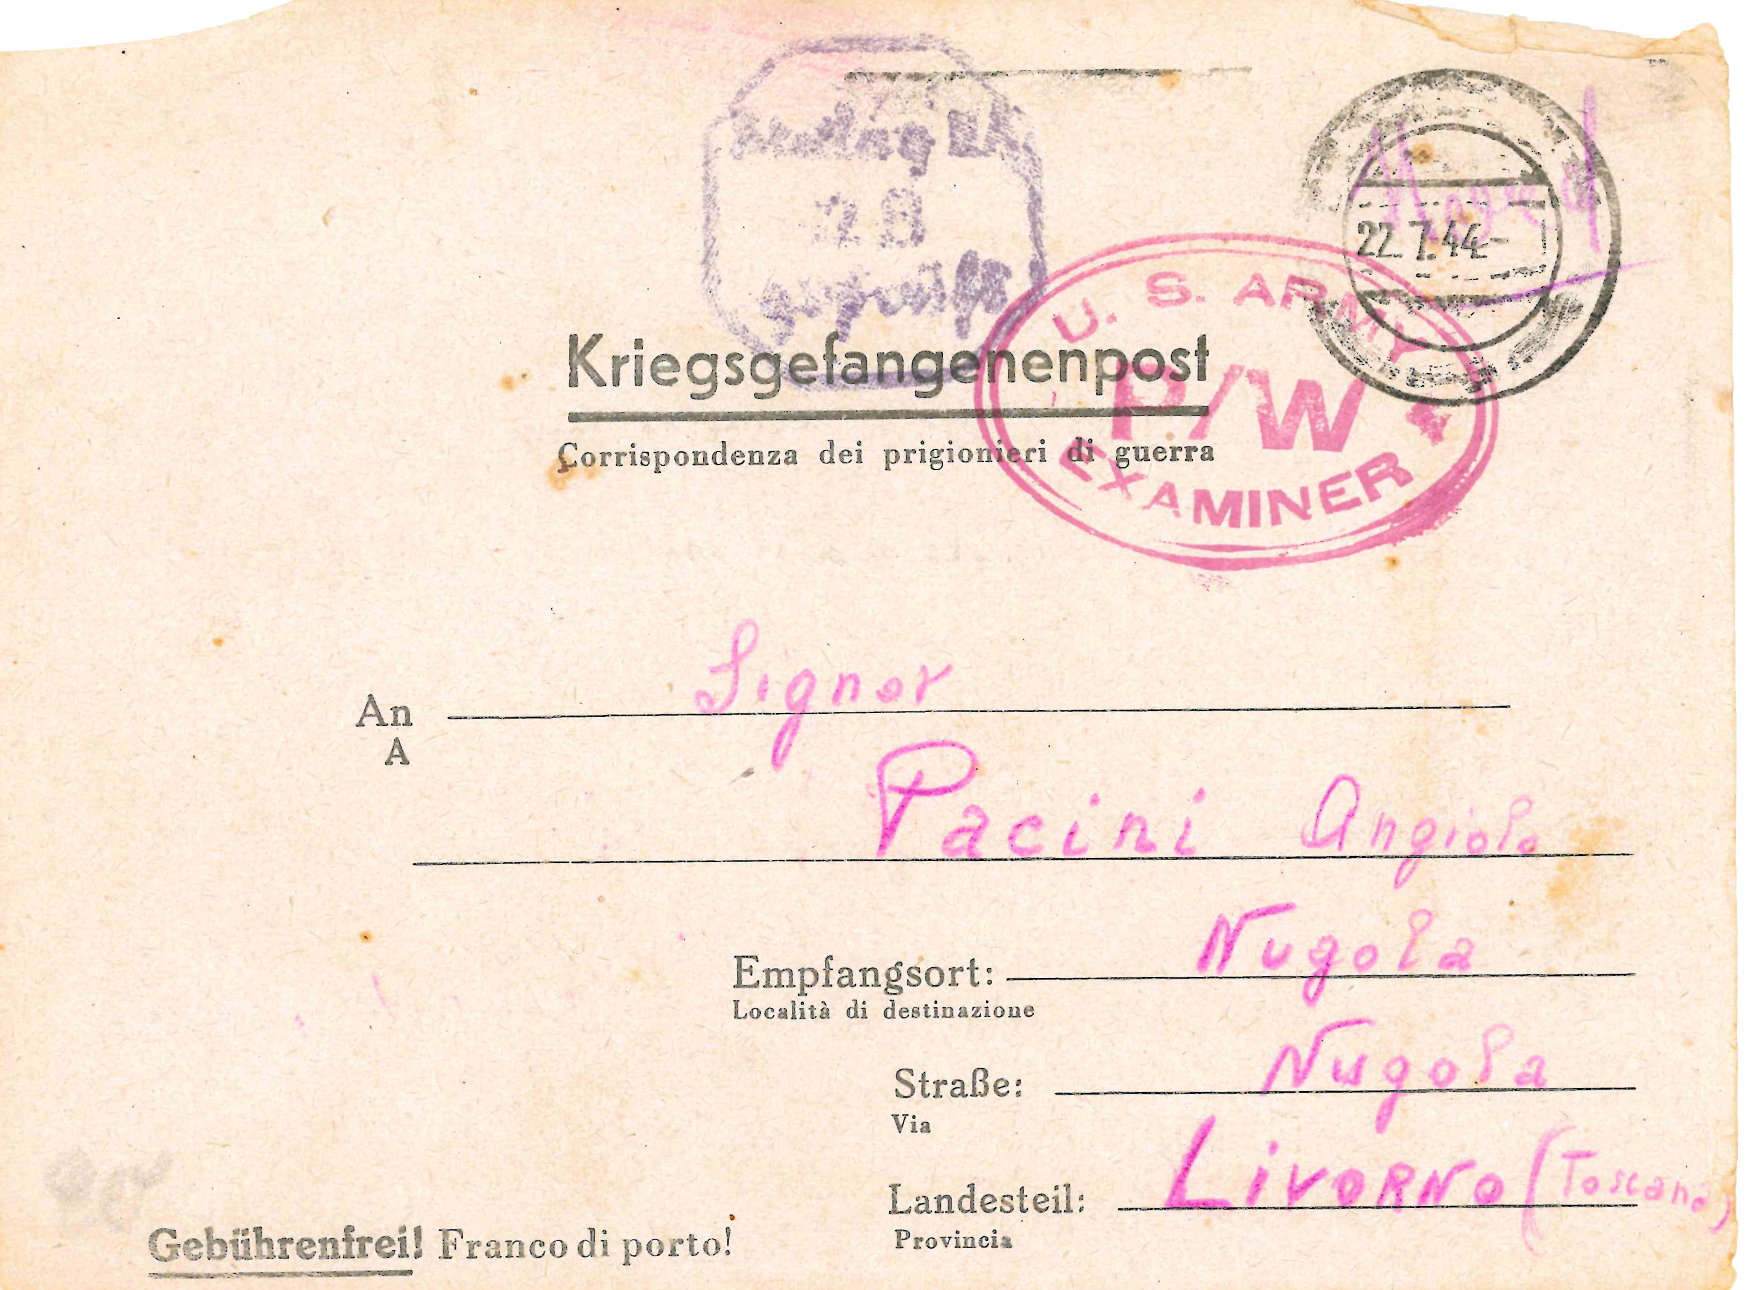 22.7.44-
U. S. ARMY
P/W
EXAMINER
geprüft
Kriegsgefangenenpost
Corrispondenza dei prigionieri di guerra
An Signor
A
Pacini Angiolo
Empfangsort: Nugola
Località di destinazione
Straße: Nugola
Via
Landesteil: LivoRNo (Toscana)
Provincia
Gebührenfrei! Franco di porto!